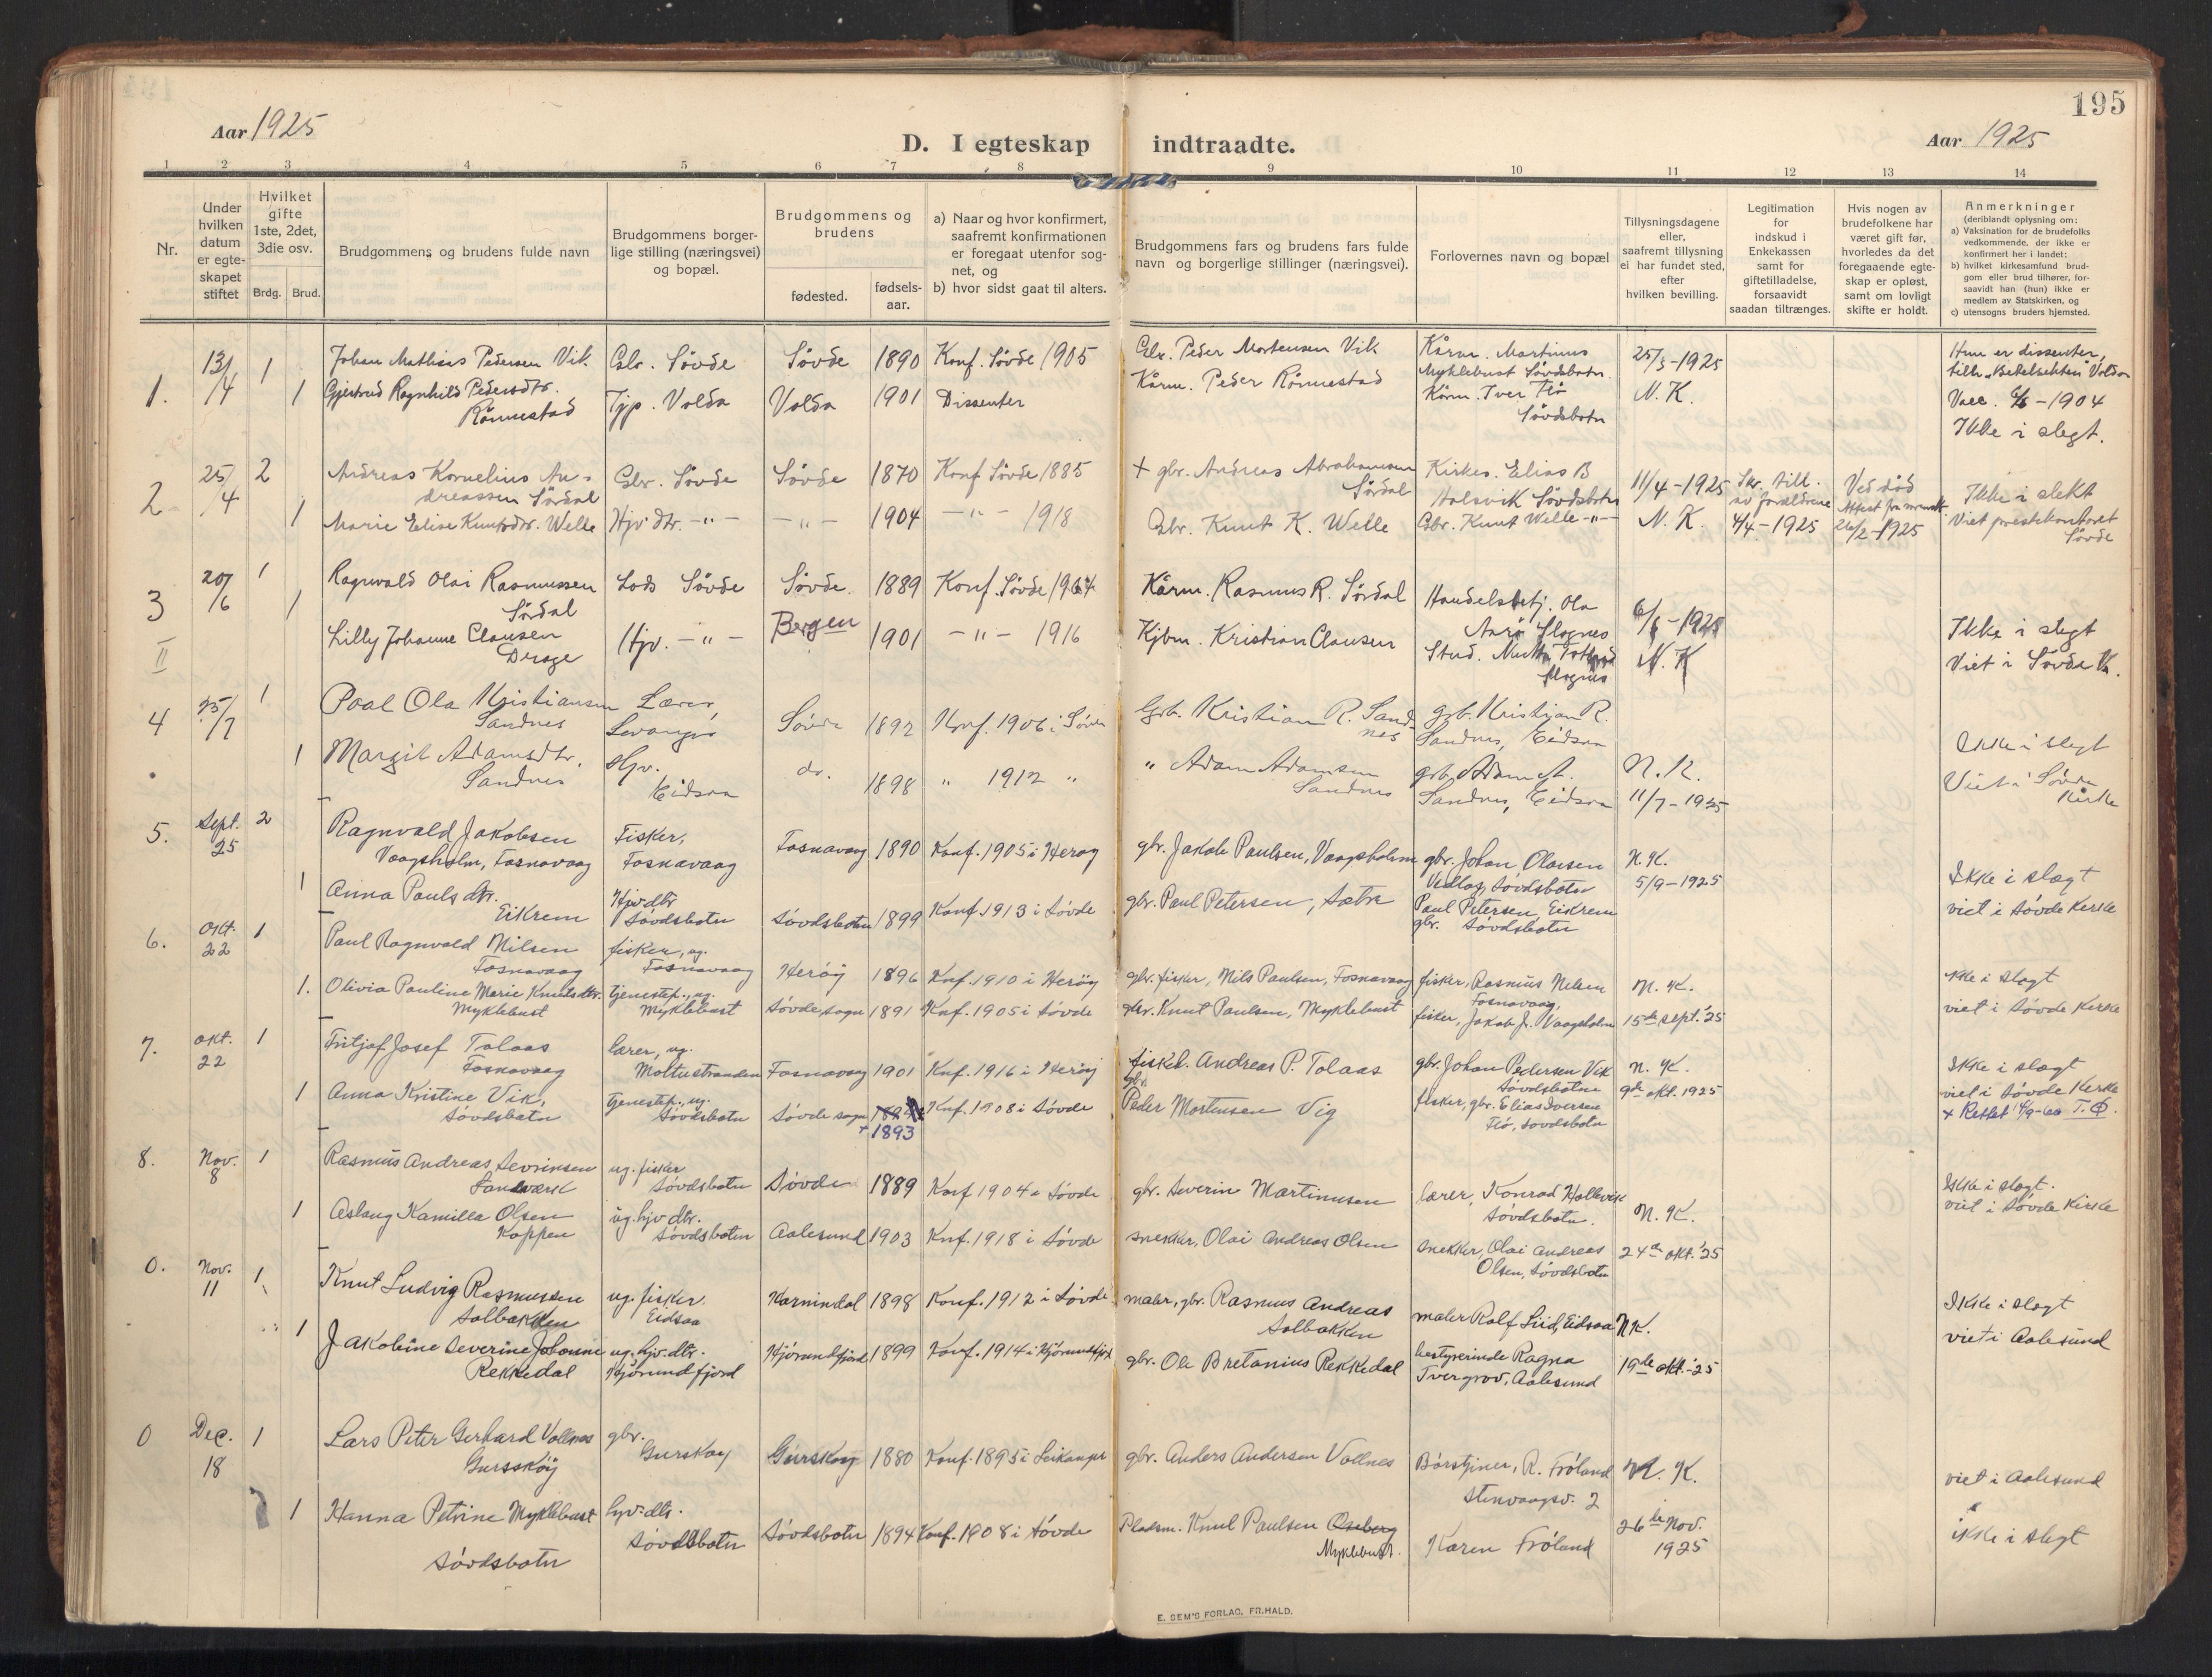 195
Aar 1925
D. I egteskap indtraadte.
Aar 1925
1 2 3 4 5 6 7 8 9 10 11 12 13 14
Nr.
Under hvilken datum er egte-skapet stiftet
Hvilket gifte 1ste, 2det, 3die osv.
Brdg. Brud.
Brudgommens og brudens fulde navn
Brudgommens borger-lige stilling (næringsvei) og bopæl.
Brudgommens og brudens
fødested.
fødsels-aar.
a) Naar og hvor konfirmert, saafremt konfirmationen er foregaat utenfor sog-net, og
b) hvor sidst gaat til alters.
Brudgommens fars og brudens fars fulde navn og borgerlige stillinger (næringsvei).
Forlovernes navn og bopæl
Tillysningsdagene eller, saafremt tillysning ei har fundet sted, efter hvilken bevilling.
Legitimation for indskud i Enkekassen samt for giftetilladelse, forsaavidt saadan tiltrænges.
Hvis nogen av brudefolkene har været gift før, hvorledes da det foregaaende egte-skap er opløst, samt om lovligt skifte er holdt.
Anmerkninger (deriblandt oplysning om:
a) Vaksination for de brudefolks vedkommende, der ikke er konfirmert her i landet;
b) hvilket kirkesamfund brud-gom eller brud tilhører, for-saavidt han (hun) ikke er medlem av Statskirken, og
c) utensogns bruders hjemsted.
1. 13/4 1 Johan Mathias Pedersen Vik Gbr. Søvde Søvde 1890 Konf. Søvde 1905 Gbr. Peder Mortensen Vik Kårm. Martinus Myklebust Søvdsbotn. 25/3-1925 Hun er dissenter,
1 Gjertrud Ragnhild Pedersdtr. Rønnestad Tjp. Volda Volda 1901 Dissenter Kårm. Peder Rønnestad Kårm. Iver Flø Søvdsbotn N. K. Vacc. -1904 Ikke i slegt.
2 25/4 2 Andreas Kornelius An-dreassen Sørdal Gbr. Søvde Søvde 1870 Konf Søvde 1885 + gbr. Andreas Abrahamsen Sørdal Kirkes. Elias B Holsvik Søvdsbotn 11/4-1925 Skr. till. av forældrene Ved død Ikke i slekt
1 Marie Elise Knutsdtr. Welle Hjv dtr. -"- -"- 1904 -"- 1918 Gbr. Knut K. Welle Gbr. Knut Welle -"- N. K. 4/4-1925 26/2-1925 Viet prestekontoret Søvde
3 20/6 1 Ragnvald Olai Rasmussen Sørdal Lods Søvde Søvde 1889 Konf. Søvde 1904 Kårm. Rasmus R. Sørdal Handelsbetj. Ola Aarø Slagnes 6/6-1925 Ikke i slegt
II 1 Lilly Johanne Clausen Drage Hjv. -"- Bergen 1901 -"- 1916 Kjbm. Kristian Clausen Stud. Slagnes N. K Viet i Søvde K.
4 25/7 1 Paal Ola Kristiansen Sandnes Lærer, Levanger Søvde 1892 Konf. 1906 i Søvde Grb. Kristian R. Sand-nes grb. Kristian R. Sandnes, Eidsaa Ikke i slegt
1 Margit Adamsdtr. Sandnes Hjv. Eidsaa do. 1898 " 1912 " " Adam Adamsen Sandnes grb. Adam A. Sandnes, Eidsaa N. K. 11/7-1925 Viet i Søvde Kirke
5. Sept. 25 2 Ragnvald Jakobsen Vaagsholm, Fosnavaag Fisker, Fosnavaag Fosnavaag 1890 Konf. 1905 i Herøy gbr. Jakob Paulsen, Vaagsholm gbr. Johan Olausen Vedlog, Søvdsbotn N. K. 5/9-1925 Ikke i slægt
1 Anna Pauls dtr. Eikrem Hjv dtr Søvdsbotn Søvdsbotn 1899 Konf. 1913 i Søvde gbr. Paul Petersen, Sætre Paul Petersen, Eikrem gbr. Søvdsbotn viet i Søvde Kirke
6. Okt. 22 1 Paul Ragnvald Nilsen Fosnavaag fisker, ug. Fosnavaag Herøy 1896 Knf. 1910 i Herøy gbr. fisker, Nils Paulsen, Fosnavaag fisker, Rasmus Nilsen Fosnavaag, N. K. ikke i slægt
1. Olivia Pauline Marie Knutsdtr. Myklebust tjenestep., ug. Myklebust Søvde sogn 1891 Knf. 1905 i Søvde gbr. Knut Paulsen, Myklebust fisker, Jakob J. Vaagsholm 15de sept. '25 viet i Søvde Kirke
7. Okt. 22 1 Fritjof Josef Tolaas Fosnavaag lærer, ug. Moltustranden Fosnavaag 1901 Knf. 1916 i Herøy fiskeb. Andreas P. Tolaas gbr. Johan Pedersen Vik Søvdsbotn N. K. Ikke i slægt
1 Anna Kristine Vik, Søvdsbotn tjenestep., ug. Søvdsbotn Søvde sogn + 1893 Knf. 1908 i Søvde gbr. Peder Mortensen Vig fisker, gbr. Elias Iversen Flø, Søvdsbotn 9de okt. 1925 viet i Søvde Kirke + Rettet 1/9-60 T. Ø.
8. Nov. 8 1 Rasmus Andreas Sevrinsen Sandværk ug. fisker Søvdsbotn Søvde 1889 Konf 1904 i Søvde gbr. Severin Martinusen lærer, Konrad Hallevik Søvdsbotn. N. K. Ikke i slægt.
1 Aslaug Kamilla Olsen Koppen ug. hjv dtr. Søvdsbotn Aalesund 1903 Knf. 1918 i Søvde snekker, Olai Andreas Olsen snekker, Olai Andreas Olsen, Søvdsbotn 24de okt. '25 viet i Søvde Kirke
0. Nov. 11 1 Knut Ludvig Rasmussen Solbakken ug. fisker. Eidsaa Hornindal 1898 Konf. 1912 i Søvde maler, gbr. Rasmus Andreas Solbakken maler Rolf Liid, Eidsaa N K. Ikke i slægt
1 Jakobine Severine Johanne Rekkedal ug. hjv. dtr. Hjørundfjord Hjørundfjord 1899 Konf. 1914 i Hjørundfjord gbr. Ole Bretanius Rekkedal bestyrerinde Ragna Tvergrov, Aalesund 19de okt. '25 viet i Aalesund
0 Dec. 18 1 Lars Peter Gerhard Vollnes Gursskøy gbr. Gurskøy Gurskøy 1880 Konf. 1895 i Leikanger gbr. Anders Andersen Vollnes Børstjiner, R. Frøland Stenvaagsv. 2 N. K. viet i Aalesund
1 Hanna Petrine Myklebust Søvdsbotn hjv. dtr. Søvdsbotn Søvdsbotn 1894 Konf. 1908 i Søvde Pladsm. Knut Paulsen Oseberg Myklebust. Karen Frøland 26de Nov. 1925 ikke i slegt
E. SEM'S FORLAG, FR.HALD.